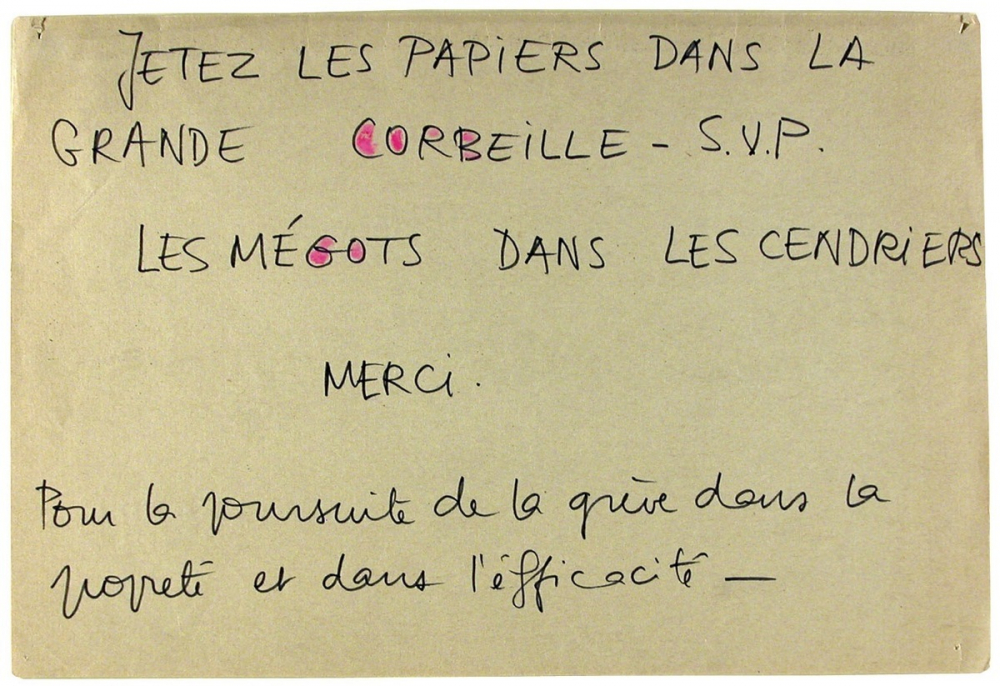 JETEZ LES PAPIERS DANS LA
GRANDE CORBEILLE - S.V.P.
LES MÉGOTS DANS LES CENDRIERS
MERCI.
Pour la poursuite de la grève dans la
propreté et dans l'éfficacité —